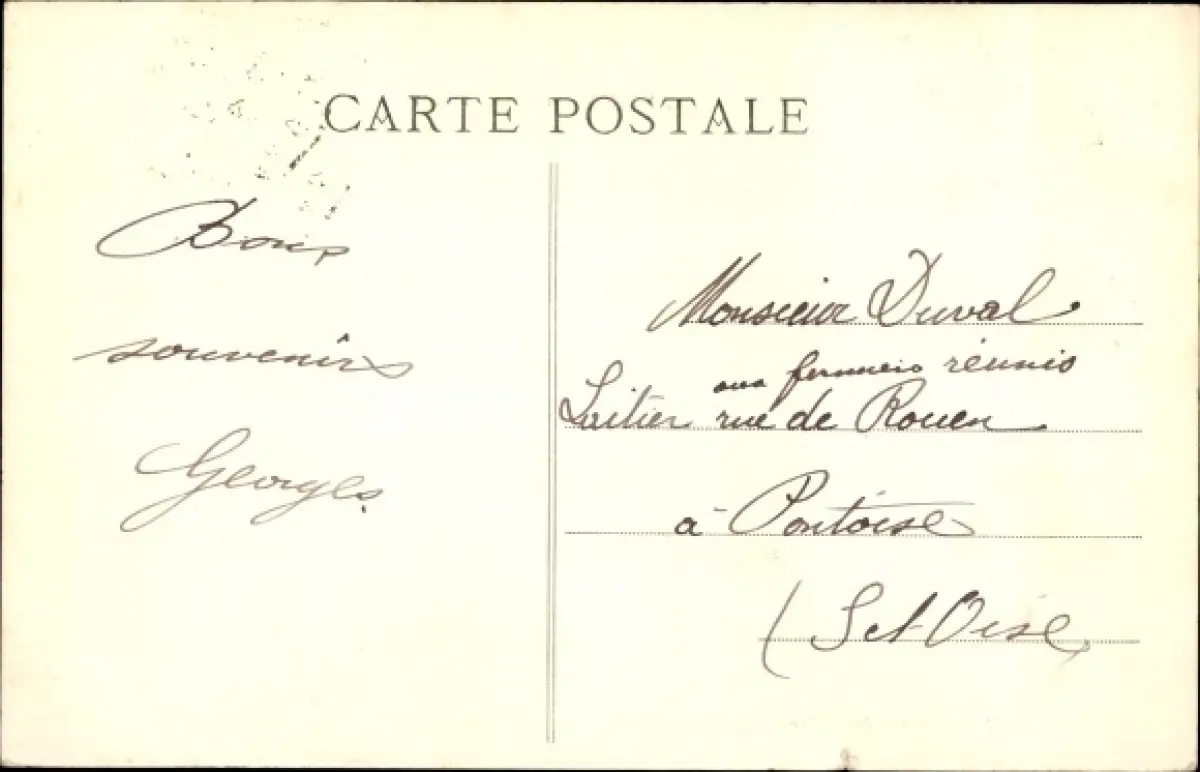 CARTE POSTALE
Bons
souvenirs
Georges
Monsieur Duval
aux fermiers réunis
Laitier rue de Rouen
à Pontoise
(S et Oise